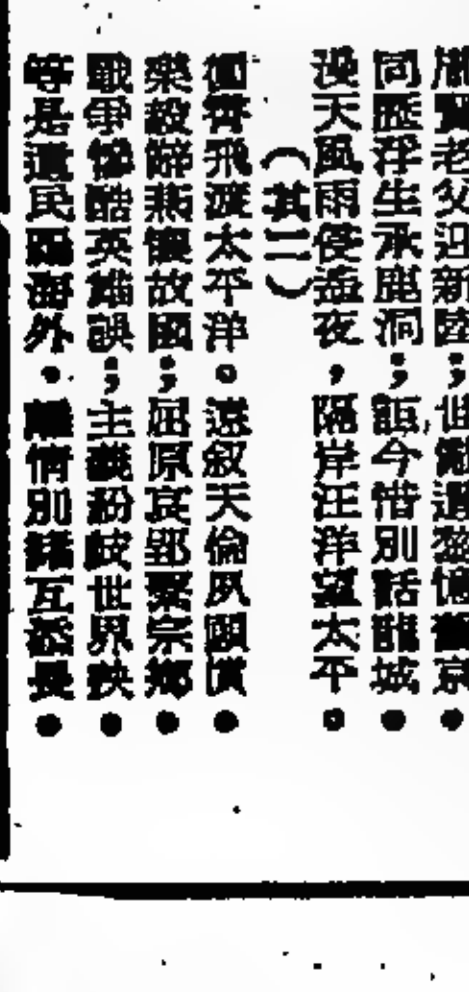 老父迎新陸；世 遺 憶 京。
同歷浮生承鹿洞；詎今惜別話龍城。
漫天風雨侵孟夜，隔岸汪洋望太平。
（其二）
衝霄飛渡太平洋。遠叙天倫夙願償。
樂毅辭燕懷故國；屈原哀郢繫宗鄉。
戰爭慘酷英雄誤；主義紛歧世界殃。
等是遺民羈海外。離情別緒互悠長。